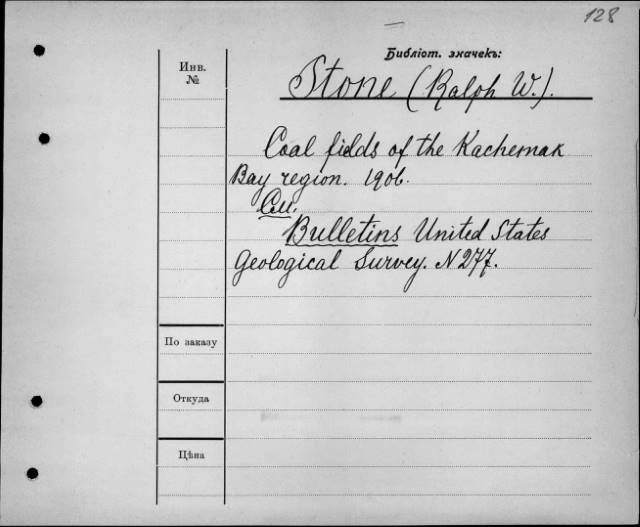 128
Библіот. значекъ:
Инв.
№
Stone (Ralph W.).
Coal fields of the Kachemak
Bay region. 1906.
См.
Bulletins United States
Geological Survey. N 277.
По заказу
Откуда
Цѣна